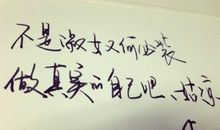 不是淑女又何必装
做真实的自己吧、姑凉